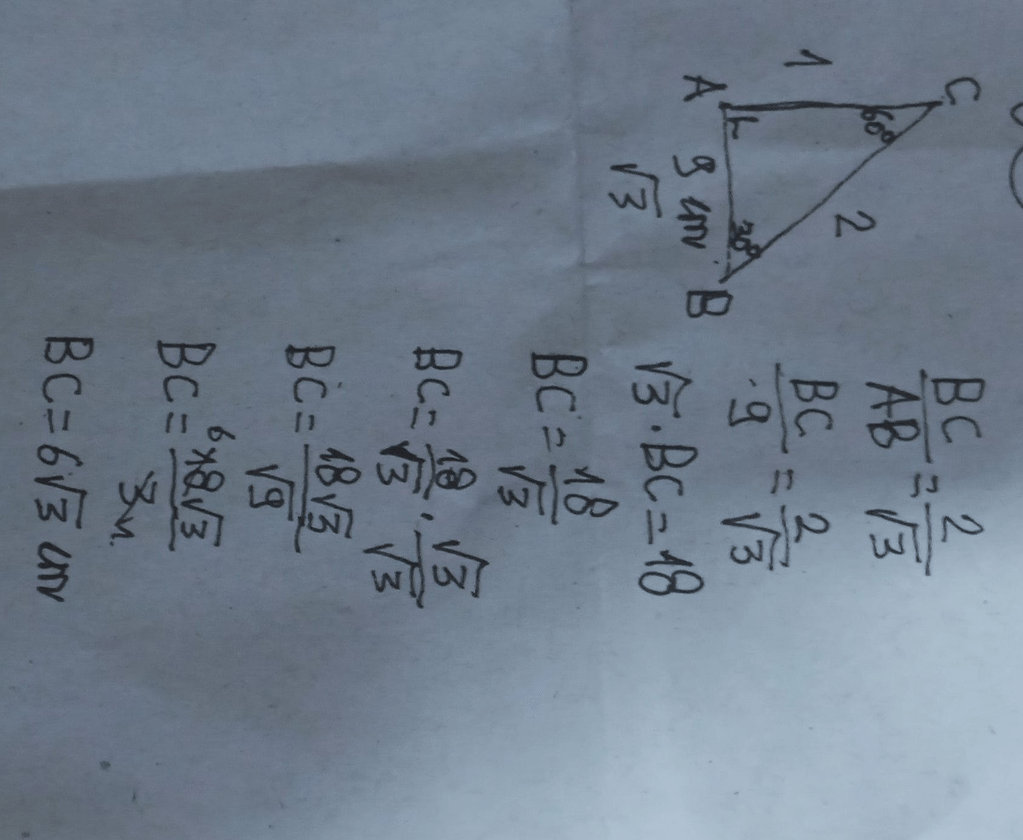 C
1
60°
2
A
9 cm
30°
B
√3
BC/AB = 2/√3
BC/9 = 2/√3
√3 . BC = 18
BC = 18/√3
BC = 18/√3 . √3/√3
BC = 18√3/√9
BC = 6 18√3/3
BC = 6√3 cm